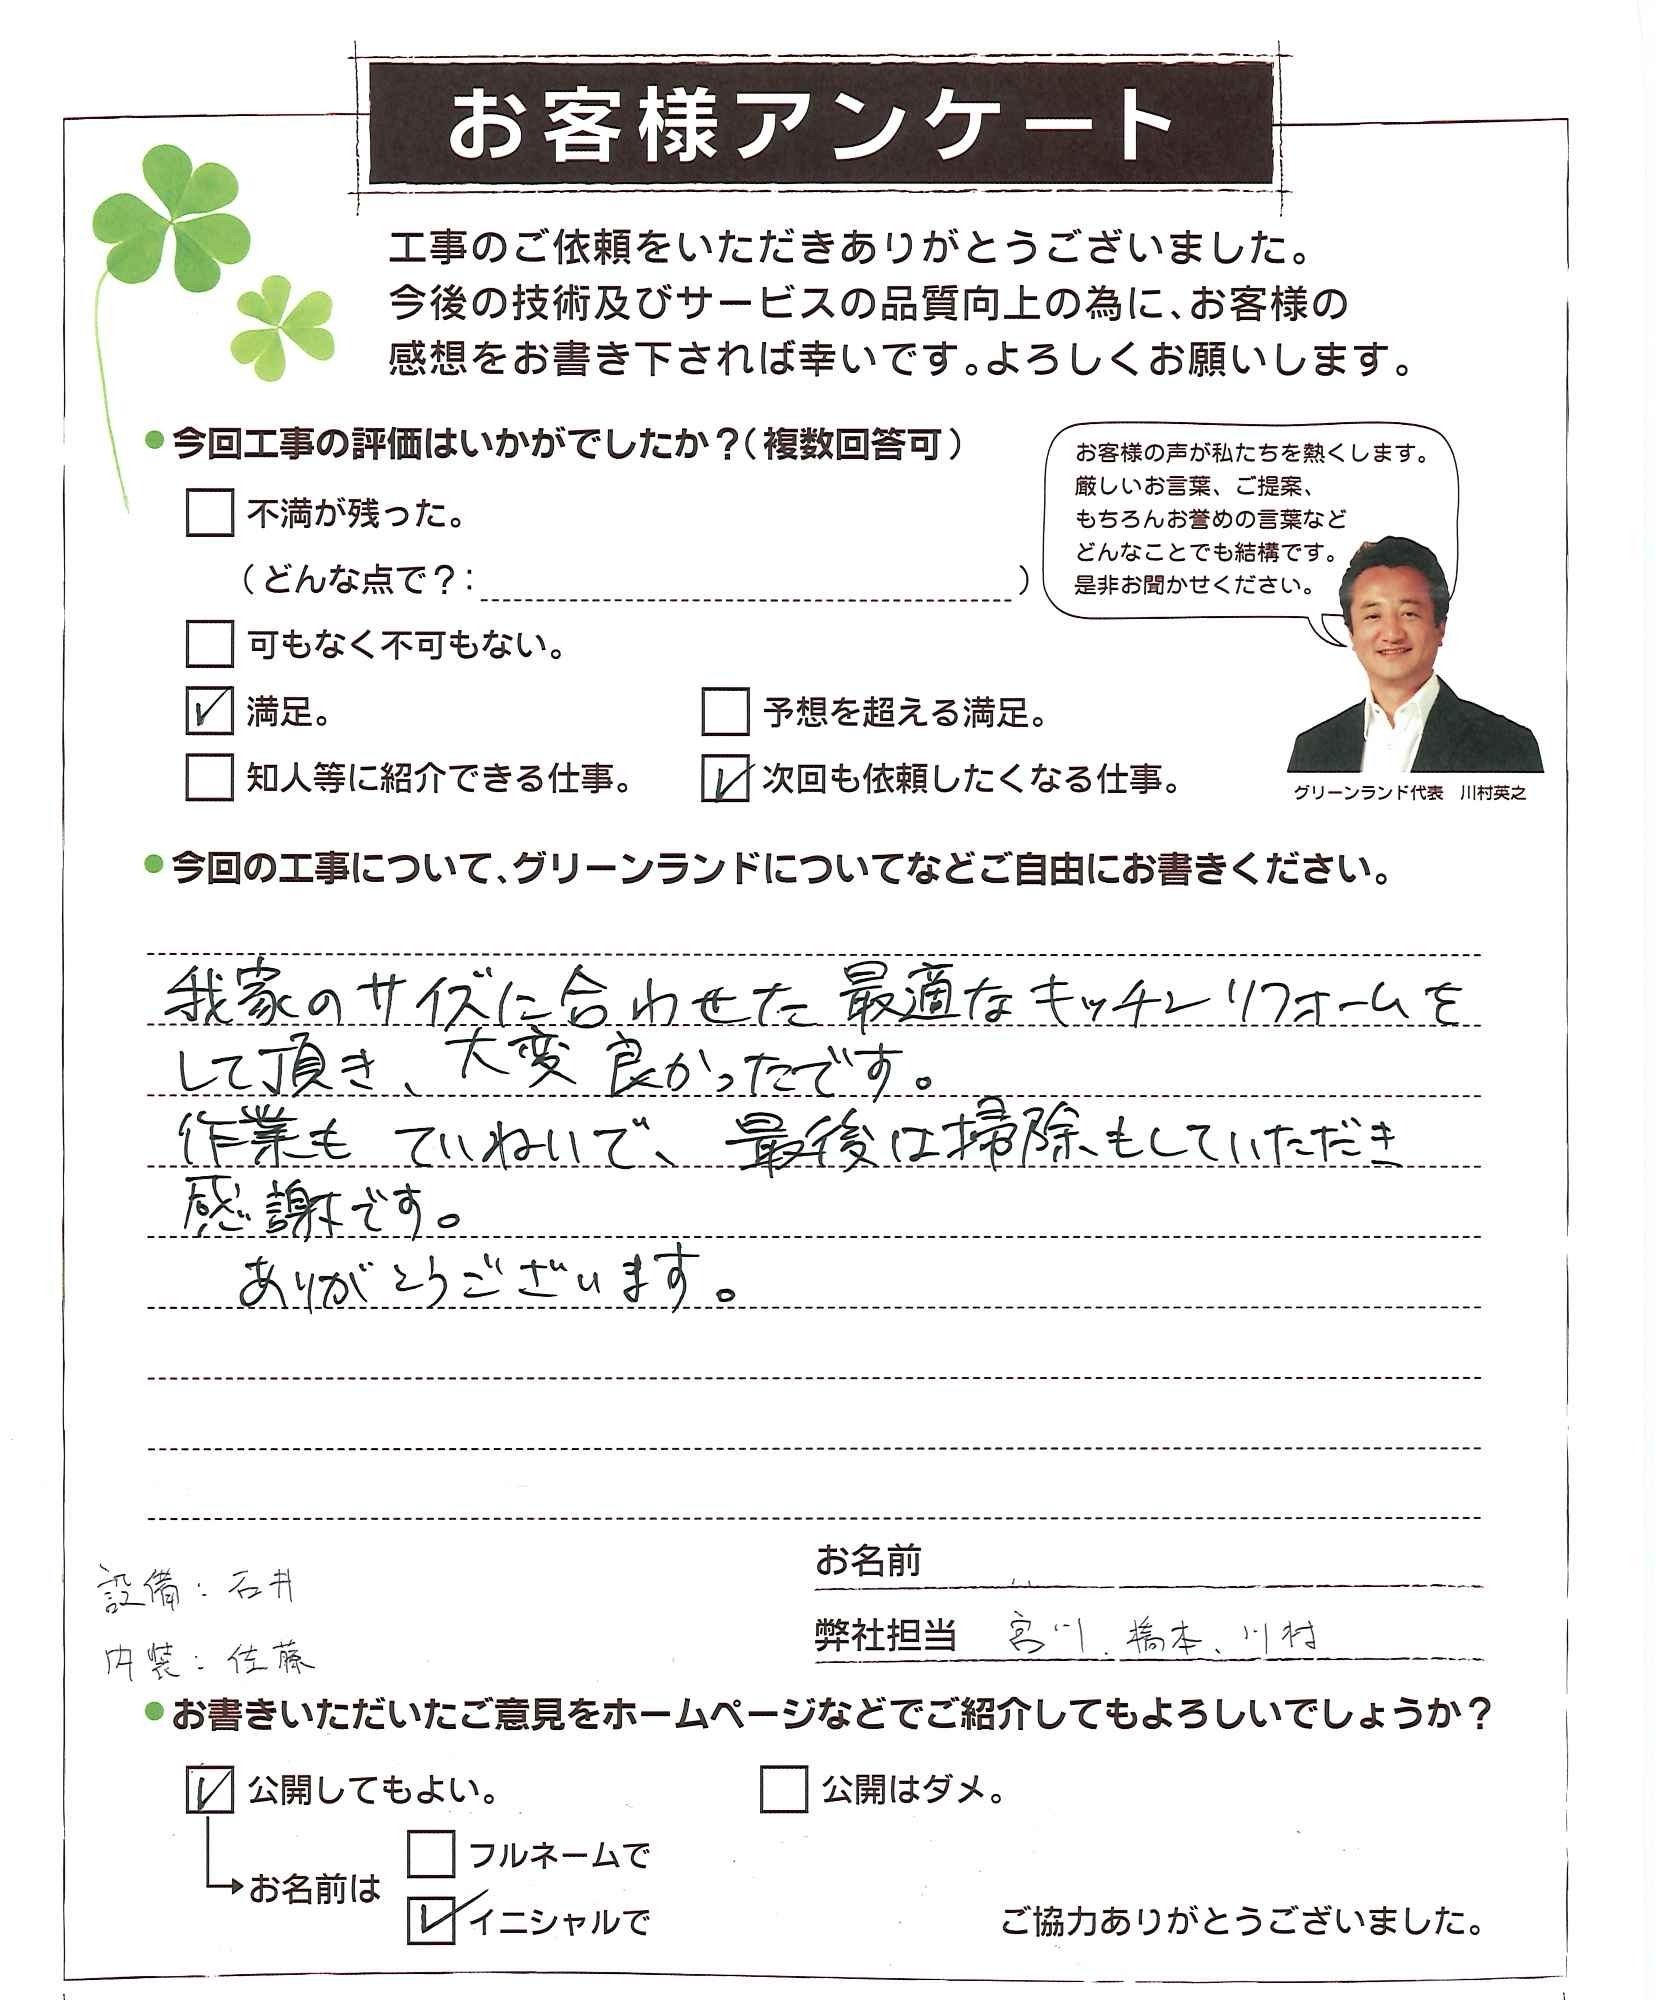 お客様アンケート
工事のご依頼をいただきありがとうございました。
今後の技術及びサービスの品質向上の為に、お客様の
感想をお書き下されば幸いです。よろしくお願いします。
●今回工事の評価はいかがでしたか?(複数回答可)
不満が残った。
(どんな点で?: )
可もなく不可もない。
満足。
予想を超える満足。
知人等に紹介できる仕事。
次回も依頼したくなる仕事。
お客様の声が私たちを熱くします。
厳しいお言葉、ご提案、
もちろんお誉めの言葉など
どんなことでも結構です。
是非お聞かせください。
グリーンランド代表 川村英之
●今回の工事について、グリーンランドについてなどご自由にお書きください。
我家のサイズに合わせた最適なキッチンリフォームを
して頂き、大変良かったです。
作業も ていねいで、最後は掃除もしていただき
感謝です。
ありがとうございます。
お名前
設備:石井
弊社担当 宮川、橋本、川村
内装:佐藤
●お書きいただいたご意見をホームページなどでご紹介してもよろしいでしょうか?
公開してもよい。
公開はダメ。
お名前は
フルネームで
イニシャルで
ご協力ありがとうございました。